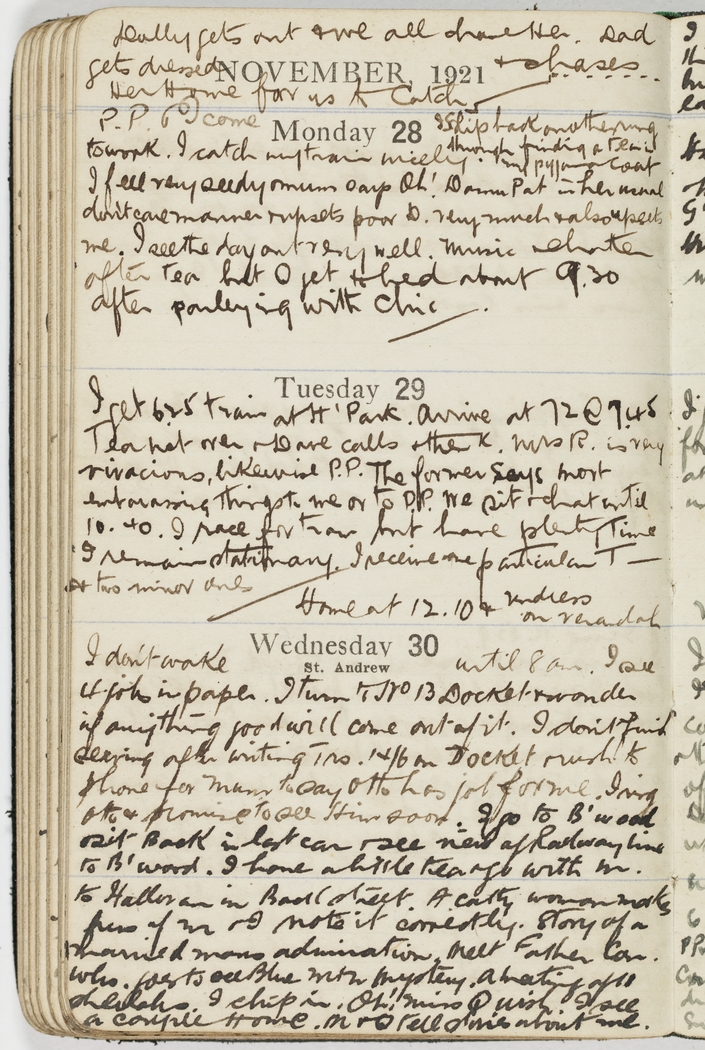 gets out & we all chase Her. Dad
gets dressed & chases
NOVEMBER, 1921
Her Home for us to Catch
P.P. & I come
Monday 28
to work. I catch my train nicely.
through finding a tear in
my pyjama coat
I feel very seedy & mum says Oh! Damn Pat in her usual
don't care manner & upsets poor D. very much & also upsets
me. I see the day out very well. Music
after tea but I get to bed about 9.30
after parleying with Chic
Tuesday 29
I get 6.25 train at H' Park. Arrive at 72 @ 7.45
Tea not over & Dave calls Mrs R. is very
vivacious, likewise P.P. The former says most
embarrassing things to me or to P.P. We sit & chat until
10.40. I race for train but have plenty time
I remain stationary. I receive one particular T—
& two minor ones
Home at 12.10 & undress
on verandah
Wednesday 30
St. Andrew
I don't wake until 8 am. I see
4 jobs in paper. I turn to No 13 Docket & wonder
if anything good will come out of it. I don't finish
serving after writing 14/6 on Docket & rush to
phone for Mum to say Otto has job for me. I ring
Otto & promise to see Him soon. I go to B'wood
& sit Back in last car & see view of Railway line
to B'wood. I have a little tea & go with M.
to Halloran in Back street. A catty woman makes
fuss of me & I note it correctly. Story of a
married mans admiration. Meet Father Con.
who goes to see Blue Mtn Mystery. A meeting of 11
I chip in. Oh! Miss Q wish. I see
a couple Home. M & O tell stories about me.